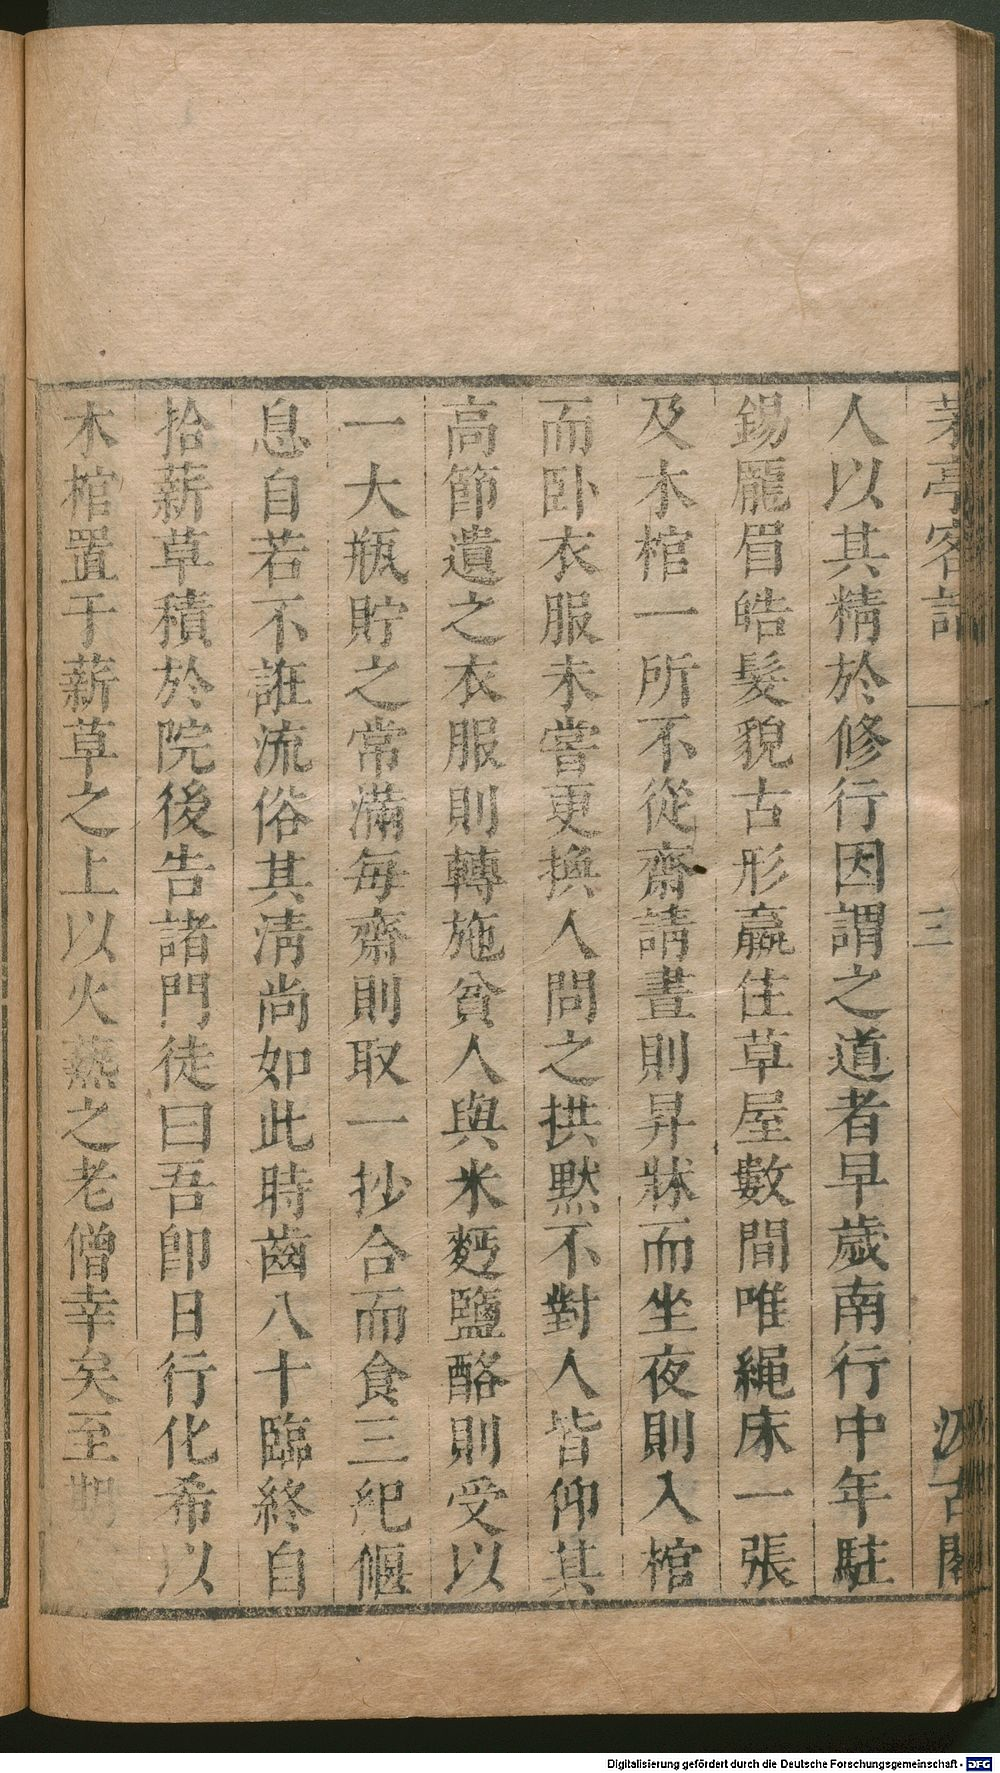 茅亭客話 三 汲古閣
人以其精於修行因謂之道者早歲南行中年駐
錫龐眉皓髮貌古形羸住草屋數間唯繩床一張
及木棺一所不從齋請晝則昇牀而坐夜則入棺
而卧衣服未嘗更換人問之拱默不對人皆仰其
高節遺之衣服則轉施貧人與米麪鹽酪則受以
一大瓶貯之常滿每齋則取一抄合而食三紀偃
息自若不誑流俗其清尚如此時齒八十臨終自
拾薪草積於院後告諸門徒曰吾即日行化希以
木棺置于薪草之上以火爇之老僧幸矣至期
Digitalisierung gefördert durch die Deutsche Forschungsgemeinschaft - DFG